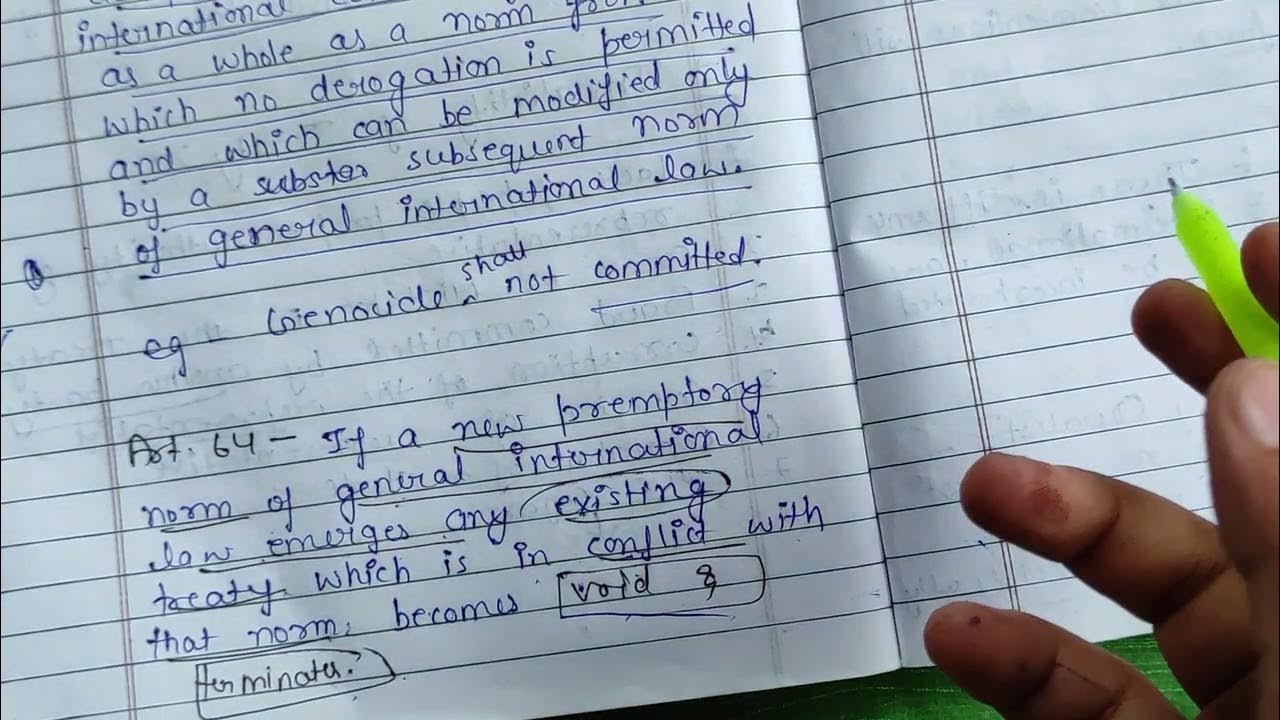 international
as a whole as a norm
which no derogation is permitted
and which can be modified only
by a subster subsequent norm
of general international law.
eg - Genocide shall not committed.
Art. 64 - If a new premptory
norm of general international
law emerges any existing
treaty which is in conflict with
that norm, becomes void &
terminates.